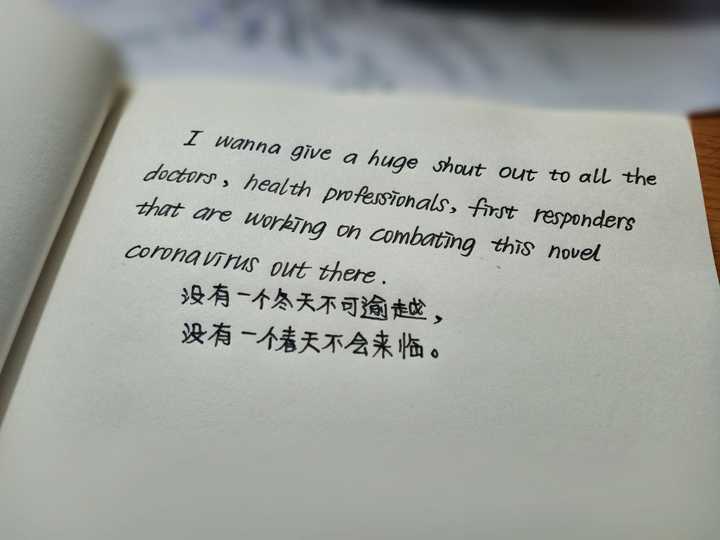 I wanna give a huge shout out to all the
doctors, health professionals, first responders
that are working on combating this novel
coronavirus out there.
没有一个冬天不可逾越，
没有一个春天不会来临。